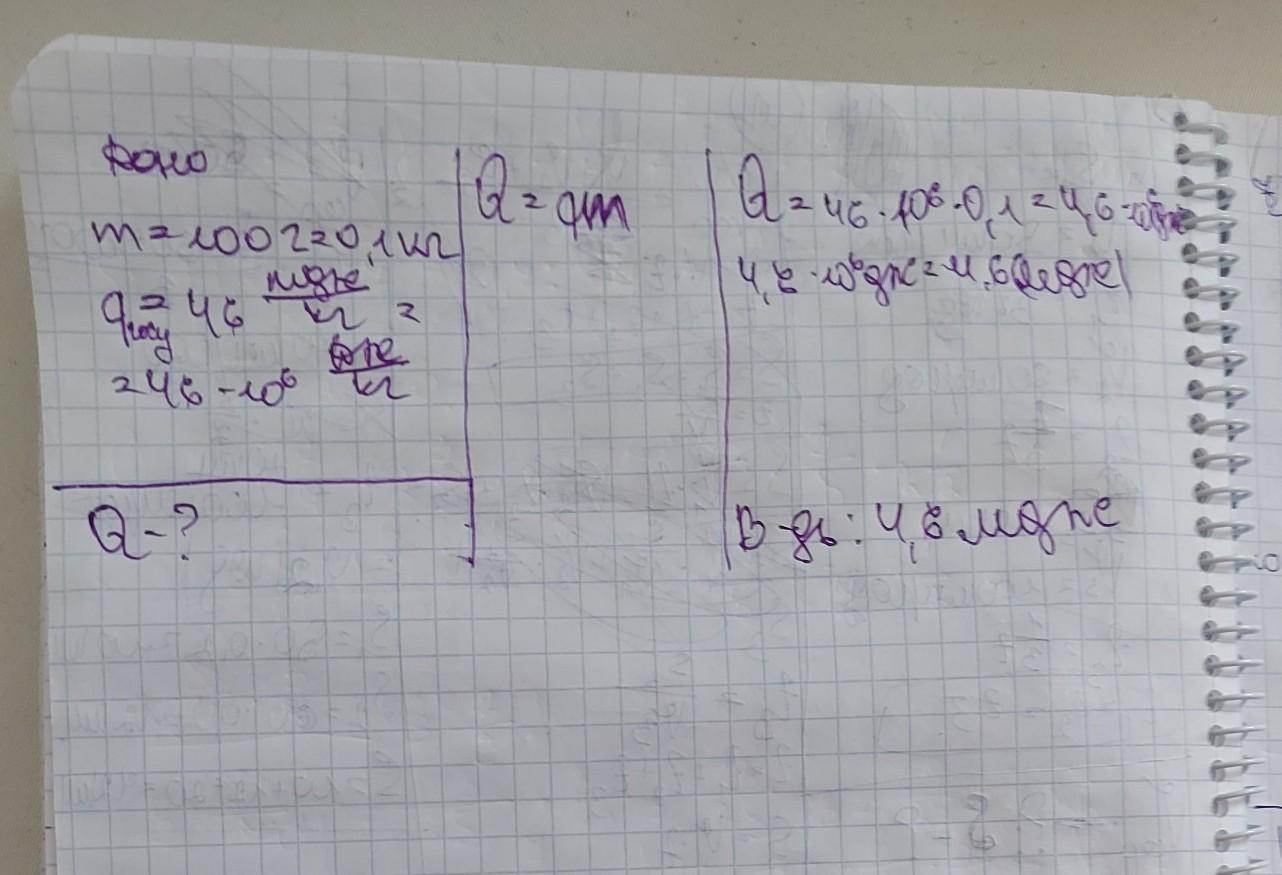 Дано
m=100г=0,1кг
q газу = 46 мдж/кг =
=46·10⁶ дж/кг
Q-?
Q=qm
Q=46·10⁶·0,1=4,6·10⁶дж
4,6·10⁶дж=4,6(мдж)
В-дь: 4,6 мдж